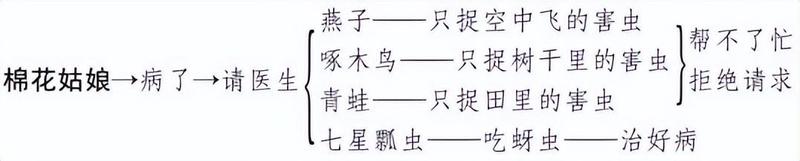 燕子——只捉空中飞的害虫
啄木鸟——只捉树干里的害虫
青蛙——只捉田里的害虫
帮不了忙
拒绝请求
棉花姑娘→病了→请医生
七星瓢虫——吃蚜虫——治好病